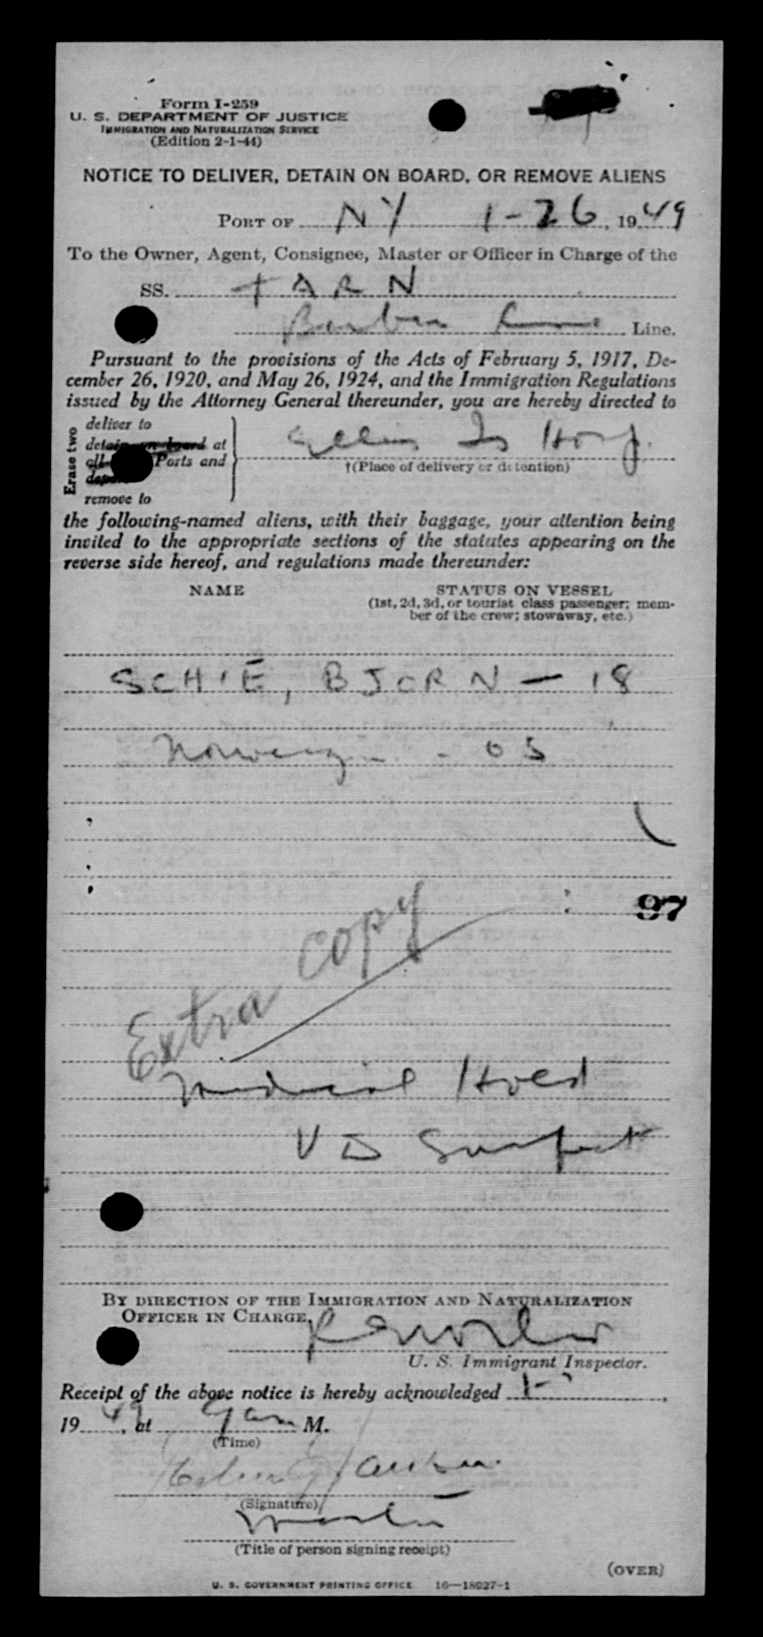 Form I-259
U. S. DEPARTMENT OF JUSTICE
IMMIGRATION AND NATURALIZATION SERVICE
(Edition 2-1-44)
NOTICE TO DELIVER, DETAIN ON BOARD, OR REMOVE ALIENS
PORT OF NY 1-26, 1949
To the Owner, Agent, Consignee, Master or Officer in Charge of the
SS. TARN
Barber Line.
Pursuant to the provisions of the Acts of February 5, 1917, De-
cember 26, 1920, and May 26, 1924, and the Immigration Regulations
issued by the Attorney General thereunder, you are hereby directed to
Erase two
deliver to
detain on board at
all Ports and
remove to
Ellis Is Hosp.
†(Place of delivery or detention)
the following-named aliens, with their baggage, your attention being
invited to the appropriate sections of the statutes appearing on the
reverse side hereof, and regulations made thereunder:
NAME STATUS ON VESSEL
(1st, 2d, 3d, or tourist class passenger; mem-
ber of the crew; stowaway, etc.)
SCHIE, BJORN - 18
Norweg. - OS
97
Extra copy
Medical Hold
VD Suspect
BY DIRECTION OF THE IMMIGRATION AND NATURALIZATION
OFFICER IN CHARGE,
U. S. Immigrant Inspector.
Receipt of the above notice is hereby acknowledged 1-
1949, at 9 am M.
(Time)
(Signature)
Master
(Title of person signing receipt)
(OVER)
U. S. GOVERNMENT PRINTING OFFICE 16—18027-1